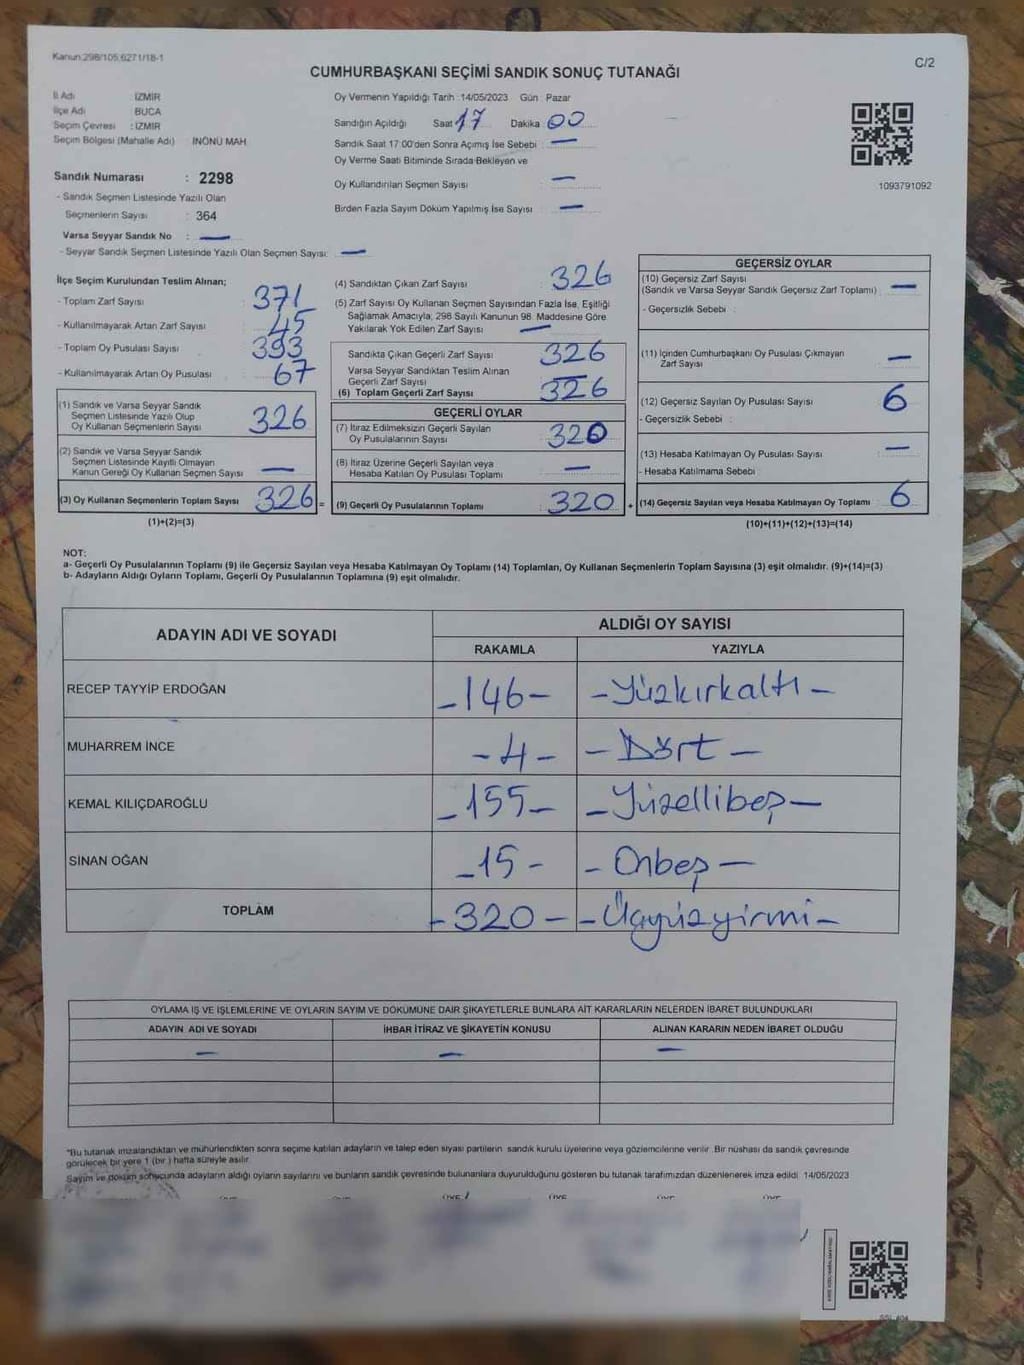 Kanun:298/105;6271/18-1
C/2
CUMHURBAŞKANI SEÇİMİ SANDIK SONUÇ TUTANAĞI
İl Adı : İZMİR
İlçe Adı : BUCA
Seçim Çevresi : İZMİR
Seçim Bölgesi (Mahalle Adı) İNÖNÜ MAH.
Sandık Numarası : 2298
- Sandık Seçmen Listesinde Yazılı Olan
Seçmenlerin Sayısı : 364
Varsa Seyyar Sandık No : —
- Seyyar Sandık Seçmen Listesinde Yazılı Olan Seçmen Sayısı: —
Oy Vermenin Yapıldığı Tarih :14/05/2023 Gün : Pazar
Sandığın Açıldığı Saat 17 Dakika 00
Sandık Saat 17:00'den Sonra Açımış İse Sebebi : —
Oy Verme Saati Bitiminde Sırada Bekleyen ve
Oy Kullandırılan Seçmen Sayısı : —
Birden Fazla Sayım Döküm Yapılmış İse Sayısı : —
1093791092
İlçe Seçim Kurulundan Teslim Alınan;
- Toplam Zarf Sayısı : 371
- Kullanılmayarak Artan Zarf Sayısı : 45
- Toplam Oy Pusulası Sayısı : 393
- Kullanılmayarak Artan Oy Pusulası : 67
(1) Sandık ve Varsa Seyyar Sandık
Seçmen Listesinde Yazılı Olup
Oy Kullanan Seçmenlerin Sayısı : 326
(2) Sandık ve Varsa Seyyar Sandık
Seçmen Listesinde Kayıtlı Olmayan
Kanun Gereği Oy Kullanan Seçmen Sayısı : —
(3) Oy Kullanan Seçmenlerin Toplam Sayısı : 326 =
(1)+(2)=(3)
(4) Sandıktan Çıkan Zarf Sayısı : 326
(5) Zarf Sayısı Oy Kullanan Seçmen Sayısından Fazla İse, Eşitliği
Sağlamak Amacıyla; 298 Sayılı Kanunun 98. Maddesine Göre
Yakılarak Yok Edilen Zarf Sayısı : —
Sandıkta Çıkan Geçerli Zarf Sayısı : 326
Varsa Seyyar Sandıktan Teslim Alınan
Geçerli Zarf Sayısı : —
(6) Toplam Geçerli Zarf Sayısı : 326
GEÇERLİ OYLAR
(7) İtiraz Edilmeksizin Geçerli Sayılan
Oy Pusulalarının Sayısı : 320
(8) İtiraz Üzerine Geçerli Sayılan veya
Hesaba Katılan Oy Pusulası Toplamı : —
(9) Geçerli Oy Pusulalarının Toplamı : 320 +
GEÇERSİZ OYLAR
(10) Geçersiz Zarf Sayısı
(Sandık ve Varsa Seyyar Sandık Geçersiz Zarf Toplamı) : —
- Geçersizlik Sebebi :
(11) İçinden Cumhurbaşkanı Oy Pusulası Çıkmayan
Zarf Sayısı : —
(12) Geçersiz Sayılan Oy Pusulası Sayısı : 6
- Geçersizlik Sebebi :
(13) Hesaba Katılmayan Oy Pusulası Sayısı : —
- Hesaba Katılmama Sebebi :
(14) Geçersiz Sayılan veya Hesaba Katılmayan Oy Toplamı : 6
(10)+(11)+(12)+(13)=(14)
NOT:
a- Geçerli Oy Pusulalarının Toplamı (9) ile Geçersiz Sayılan veya Hesaba Katılmayan Oy Toplamı (14) Toplamları, Oy Kullanan Seçmenlerin Toplam Sayısına (3) eşit olmalıdır. (9)+(14)=(3)
b- Adayların Aldığı Oyların Toplamı, Geçerli Oy Pusulalarının Toplamına (9) eşit olmalıdır.
ADAYIN ADI VE SOYADI ALDIĞI OY SAYISI
RAKAMLA YAZIYLA
RECEP TAYYİP ERDOĞAN -146- -Yüzkırkaltı-
MUHARREM İNCE -4- -Dört-
KEMAL KILIÇDAROĞLU -155- -Yüzellibeş-
SİNAN OĞAN -15- -Onbeş-
TOPLAM -320- -Üçyüzyirmi-
OYLAMA İŞ VE İŞLEMLERİNE VE OYLARIN SAYIM VE DÖKÜMÜNE DAİR ŞİKAYETLERLE BUNLARA AİT KARARLARIN NELERDEN İBARET BULUNDUKLARI
ADAYIN ADI VE SOYADI İHBAR İTİRAZ VE ŞİKAYETİN KONUSU ALINAN KARARIN NEDEN İBARET OLDUĞU
— — —
*Bu tutanak imzalandıktan ve mühürlendikten sonra seçime katılan adayların ve talep eden siyasi partilerin sandık kurulu üyelerine veya gözlemcilerine verilir. Bir nüshası da sandık çevresinde
görülecek bir yere 1 (bir) hafta süreyle asılır.
Sayım ve döküm sonucunda adayların aldığı oyların sayılarını ve bunların sandık çevresinde bulunanlara duyurulduğunu gösteren bu tutanak tarafımızdan düzenlenerek imza edildi. 14/05/2023